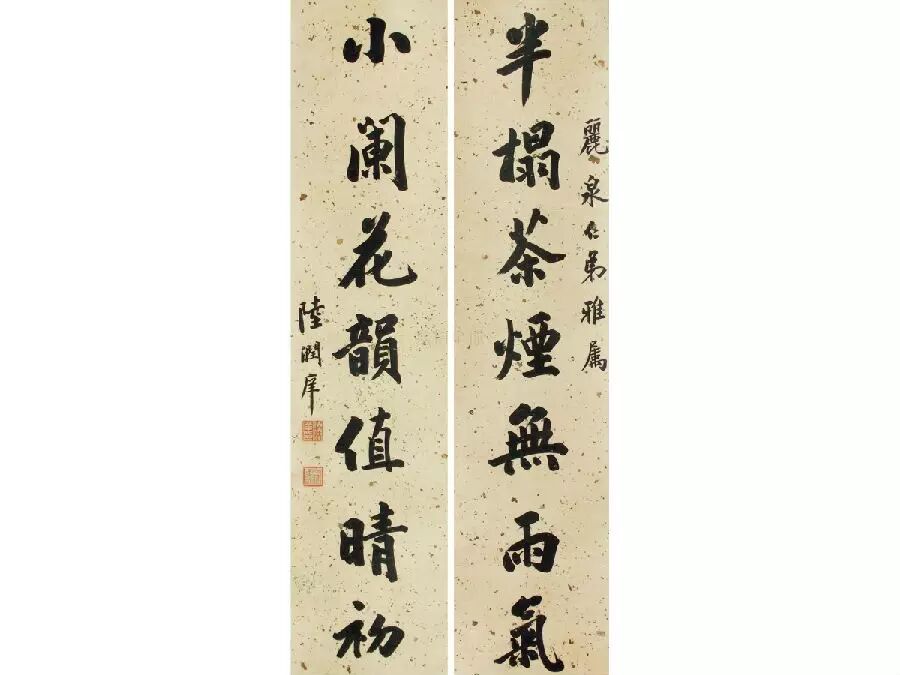 麗泉仁弟雅属
半榻茶煙無雨氣
小闌花韻值晴初
陸潤庠